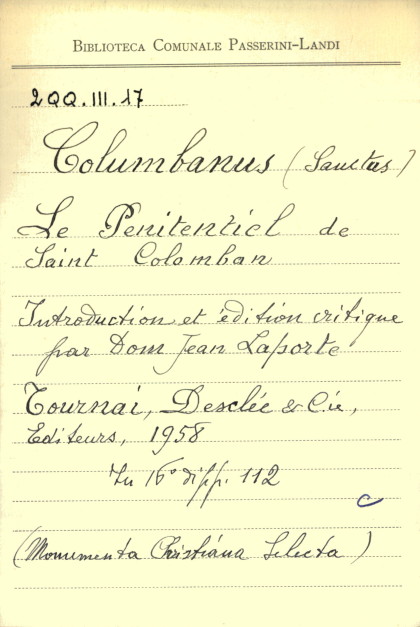 BIBLIOTECA COMUNALE PASSERINI-LANDI
2QQ.III.17
Columbanus (Sanctus)
Le Penitentiel de
Saint Colomban
Introduction et édition critique
par Dom Jean Laporte
Tournai, Desclée & Cie,
Editeurs, 1958
In 16° di pp. 112
C
(Monumenta Christiana Selecta)